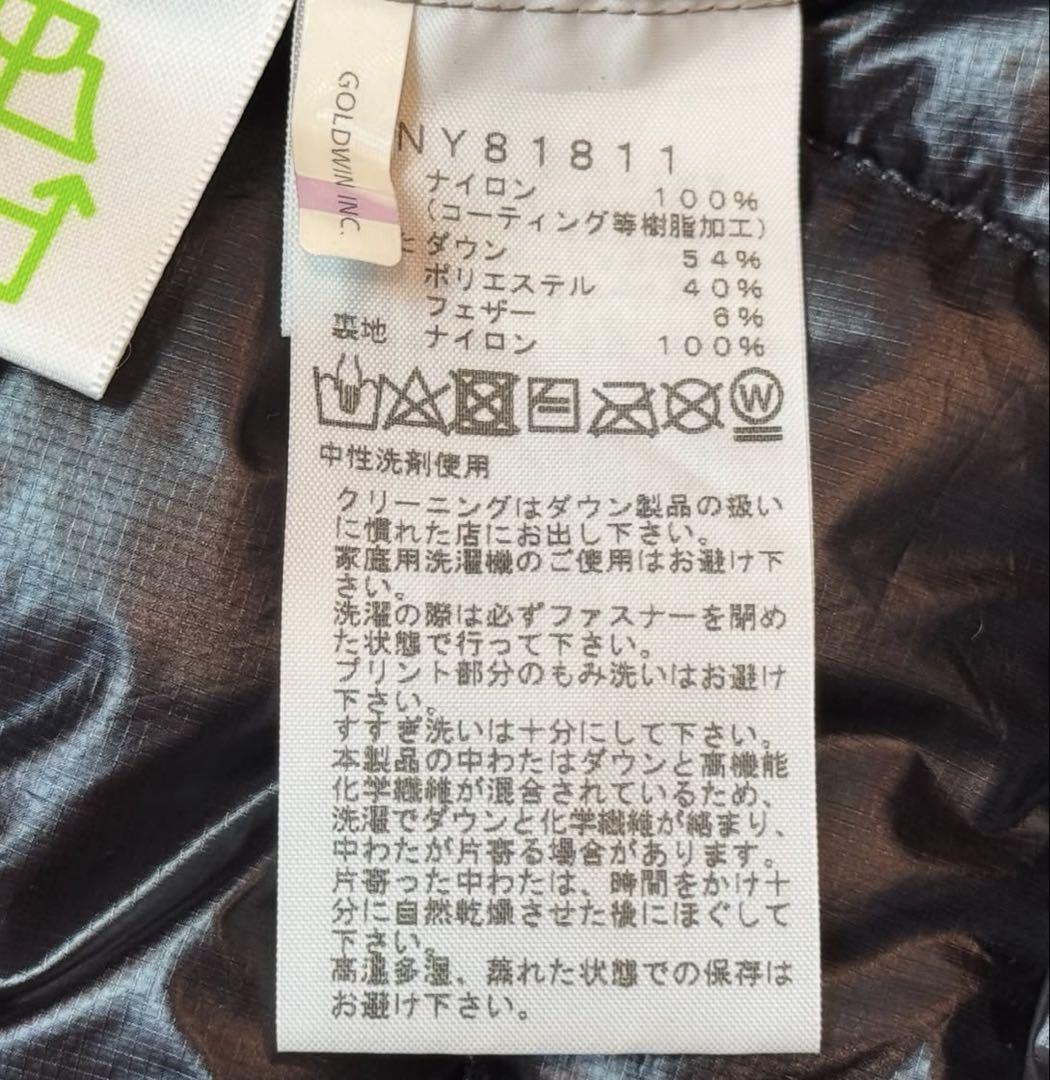 GOLDWIN INC.
NY81811
ナイロン 100%
(コーティング等樹脂加工)
ダウン 54%
ポリエステル 40%
フェザー 6%
裏地 ナイロン 100%
W
中性洗剤使用
クリーニングはダウン製品の扱い
に慣れた店にお出し下さい。
家庭用洗濯機のご使用はお避け下
さい。
洗濯の際は必ずファスナーを閉め
た状態で行って下さい。
プリント部分のもみ洗いはお避け
下さい。
すすぎ洗いは十分にして下さい。
本製品の中わたはダウンと高機能
化学繊維が混合されているため、
洗濯でダウンと化学繊維が絡まり、
中わたが片寄る場合があります。
片寄った中わたは、時間をかけ十
分に自然乾燥させた後にほぐして
下さい。
高温多湿、蒸れた状態での保存は
お避け下さい。